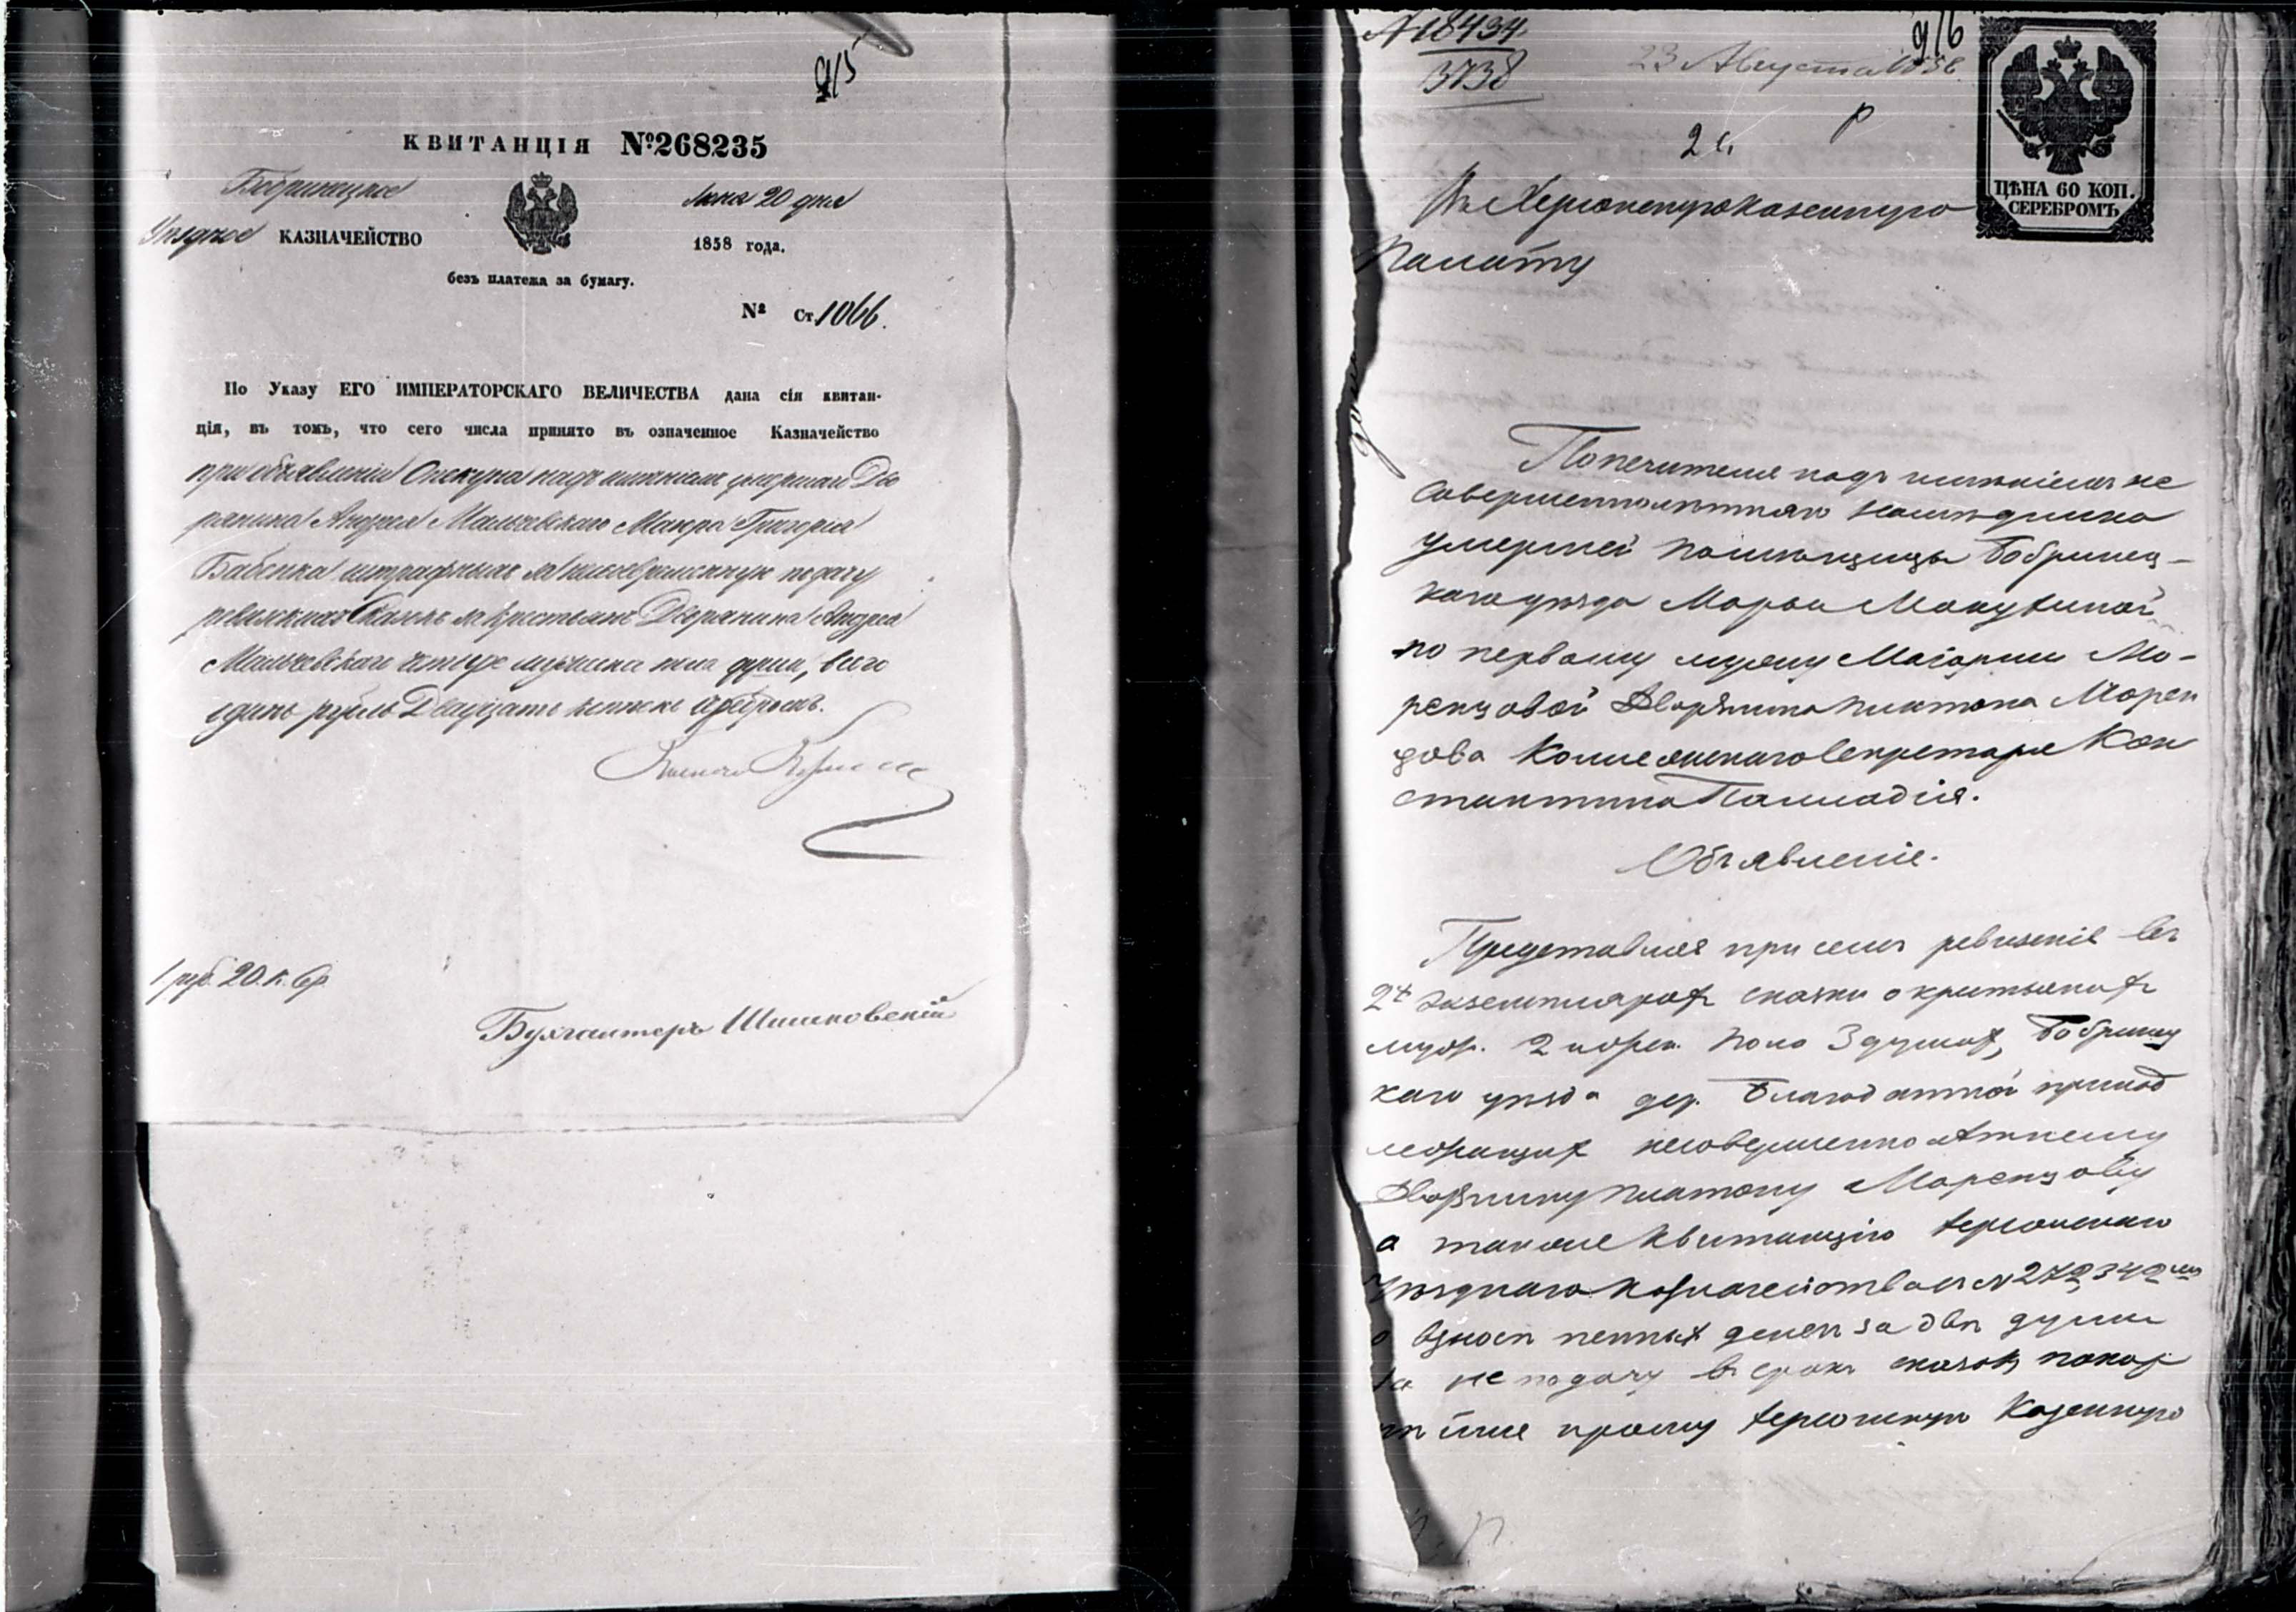 915
КВИТАНЦІЯ №268235
Бобринецкое
Уѣздное КАЗНАЧЕЙСТВО
20 дня
1858 года.
безъ платежа за бумагу.
№ Ст. 1066.
По Указу ЕГО ИМПЕРАТОРСКАГО ВЕЛИЧЕСТВА дана сія квитан-
ція, въ томъ, что сего числа принято въ означенное Казначейство
при объявленіи Опекуна надъ имѣніемъ умершаго Дво
рянина Андрея Мальчевскаго Григорія
Бабенка штрафныхъ за подачу
ревизкихъ Сказокъ крестьянъ Дворянина Андрея
Мальчевскаго мужеска пола души, всего
одинъ рубль Двадцать копѣекъ серебромъ.
1 руб. 20. к. Ср.
Бухгалтеръ Шишковскій
№ 18434
3738
23 Августа 1858
916
ЦѢНА 60 КОП.
СЕРЕБРОМЪ
Въ Херсонскую казенную
Палату
Попечителя надъ имѣніемъ не
совершеннолѣтняго наслѣдника
умершей помѣщицы Бобринец-
каго уѣзда Марьи
по первому мужу Маіорши Мо-
ренцовой Дворянина Платона Морен
цова Коллежскаго Секретаря Кон
стантина Палладія.
Объявленіе.
Представляя при семъ ревизскіе въ
2х экземплярахъ сказки о крестьянахъ
муж. 2 и жен. пола 3 душахъ, Бобринец
каго уѣзда дер. Благодатной принад
лежащихъ несовершеннолѣтнему
Дворянину Платону Моренцову
а также квитанцію Херсонскаго
Уѣзднаго Казначейства за № 272342мъ
о взносѣ пенныхъ денегъ за двѣ души
за не подачу въ срокъ сказокъ покор
нѣйше прошу Херсонскую Казенную